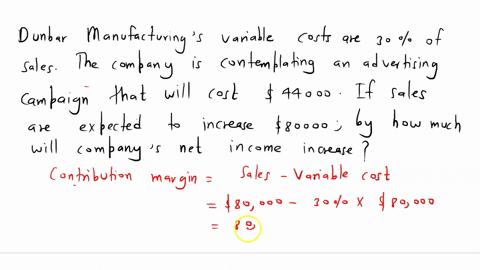 Dunbar Manufacturing's variable costs are 30% of
sales. The company is contemplating an advertising
campaign that will cost $44000. If sales
are expected to increase $80000; by how much
will company's net income increase?
Contribution margin = Sales - Variable cost
= $80,000 - 30% × $80,000
= 80,